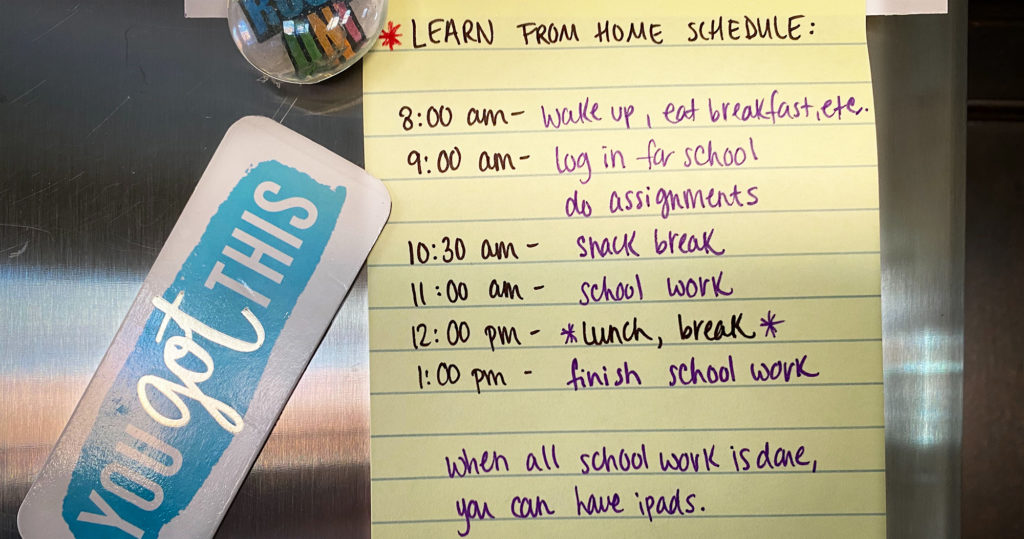 * LEARN FROM HOME SCHEDULE:
8:00 am- wake up, eat breakfast, etc.
9:00 am- log in for school
do assignments
10:30 am- snack break
11:00 am- school work
12:00 pm- *lunch, break*
1:00 pm- finish school work
when all school work is done,
you can have ipads.
YOU got THIS